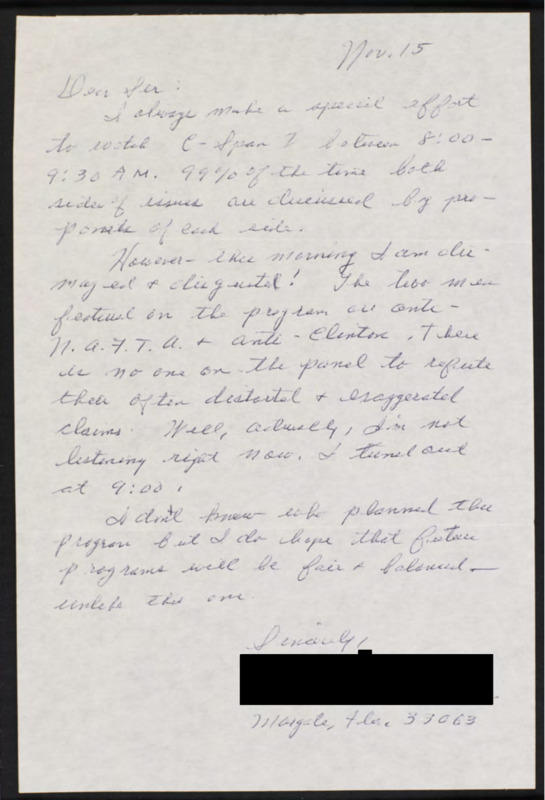 Nov. 15
Dear Sir:
I always make a special effort
to watch C-Span I between 8:00-
9:30 AM. 99% of the time both
sides of issues are discussed by pro-
ponets of each side.
However- this morning I am dis-
mayed & disgusted! The two men
featured on the program are anti-
N.A.F.T.A. & anti-Clinton. There
is no one on the panel to refute
their often distorted & exaggerated
claims. Well, actually, I'm not
listening right now. I tuned out
at 9:00.
I don't know who planned this
program but I do hope that future
programs will be fair & balanced—
unlike this one.
Sincerely,
Margate, Fla. 33063